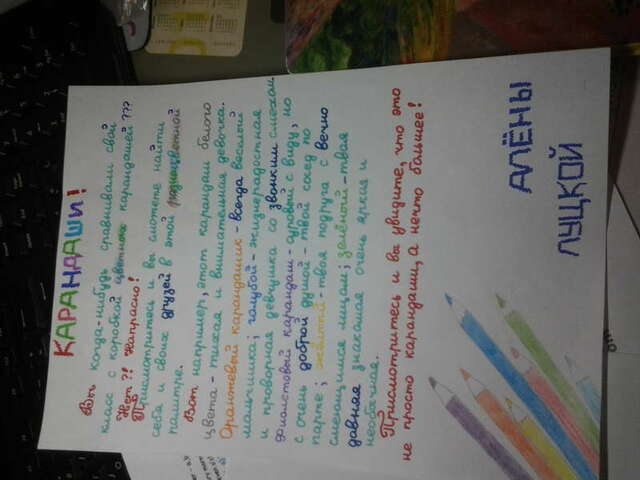 КАРАНДАШИ!
Вы когда-нибудь сравнивали свой
класс с коробкой цветных карандашей???
Нет?! Напрасно!
Присмотритесь и вы сможете найти
себя и своих друзей в этой разноцветной
палитре.
Вот например, этот карандаш белого
цвета - тихая и внимательная девочка.
Оранжевый карандашик - всегда весёлый
мальчишка; голубой - жизнерадостная
и проворная девчушка со звонким смехом.
фиолетовый карандаш - суровый с виду, но
с очень доброй душой - твой сосед по
парте; жёлтый - твоя подруга с вечно
смеющимся лицом; зелёный - твоя
давняя знакомая очень яркая и
необычная.
Присмотритесь и вы увидите, что это
не просто карандаши, а нечто большее!
АЛЁНЫ
ЛУЦКОЙ